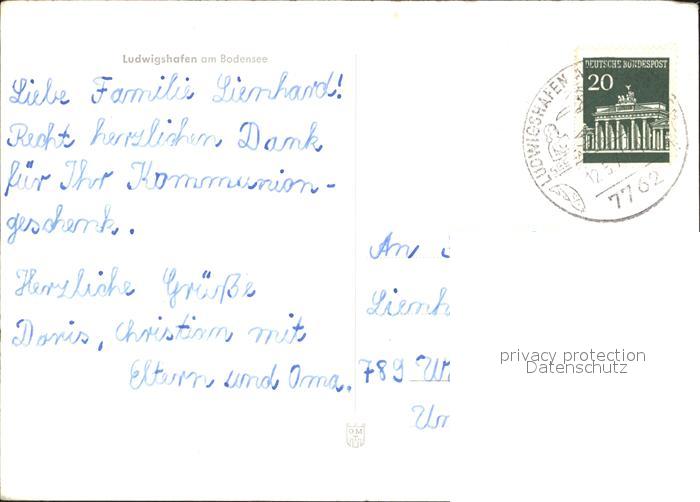 Ludwigshafen am Bodensee
Liebe Familie Lienhard!
Recht herzlichen Dank
für Ihr Kommunion-
geschenk.
Herzliche Grüße
Doris, Christian mit
Eltern und Oma.
DEUTSCHE BUNDESPOST
20
LUDWIGSHAFEN
12.5.
7762
An
Lienh
789 W
Un
privacy protection
Datenschutz